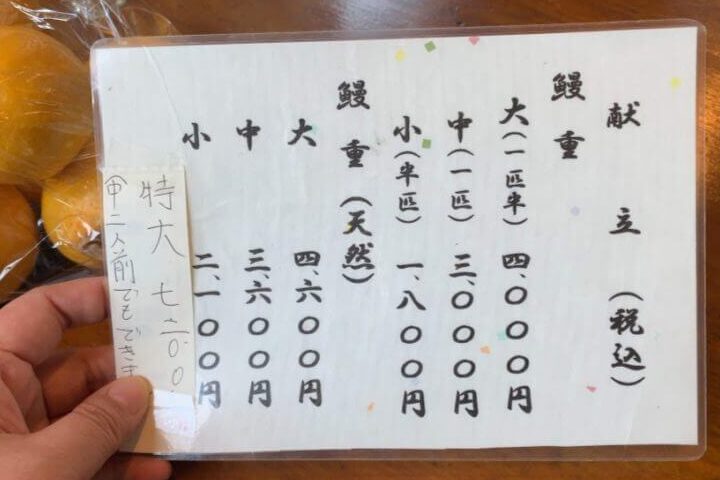 献立(税込)
鰻重
大(一匹半) 四、〇〇〇円
中(一匹) 三、〇〇〇円
小(半匹) 一、八〇〇円
鰻重(天然)
大 四、六〇〇円
中 三、六〇〇円
小 二、一〇〇円
特大 七二〇〇
㊥二人前でもできま